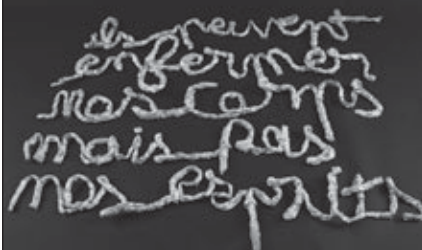 ils peuvent
enfermer
nos corps
mais pas
nos esprits